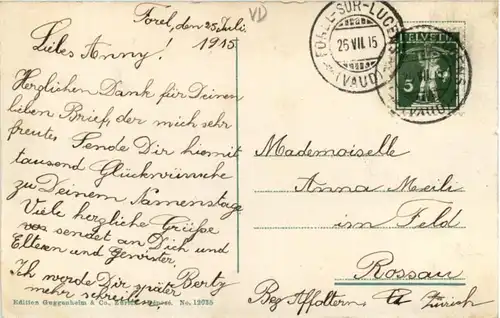 Forel, den 25 Juli
1915
VD
Liebes Anny!
Herzlichen Dank für Deinen
lieben Brief, der mich sehr
freute. Sende Dir hiemit
tausend Glückwünsche
zu Deinem Namenstage
Viele herzliche Grüsse
sendet an Dich und
Eltern und Gewister
Bertz
Ich werde Dir später
mehr schreiben.
Edition Guggenheim & Co., No. 12035
FOREL-SUR-LUC
26 VII 15
(VAUD)
HELVETIA
5
Mademoiselle
Anna Meili
im Feld
Rossau
Bez Affoltern Zürich